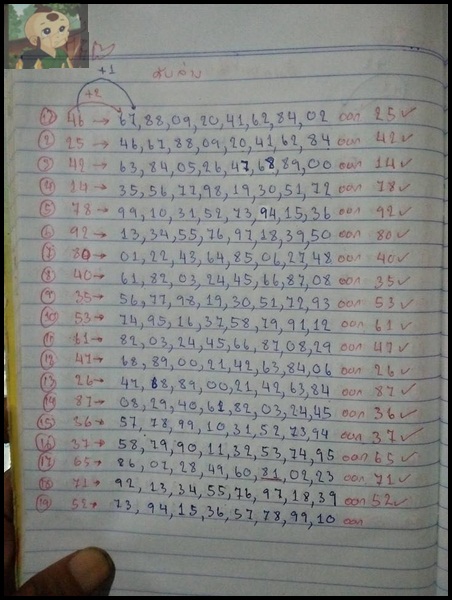 +1 สิบล่าง
+2
① 46 → 67,88,09,20,41,62,84,02 ออก 25 ✓
② 25 → 46,67,88,09,20,41,62,84 ออก 42 ✓
③ 42 → 63,84,05,26,47,68,89,00 ออก 14 ✓
④ 14 → 35,56,77,98,19,30,51,72 ออก 78 ✓
⑤ 78 → 99,10,31,52,73,94,15,36 ออก 92 ✓
⑥ 92 → 13,34,55,76,97,18,39,50 ออก 80 ✓
⑦ 80 → 01,22,43,64,85,06,27,48 ออก 40 ✓
⑧ 40 → 61,82,03,24,45,66,87,08 ออก 35 ✓
⑨ 35 → 56,77,98,19,30,51,72,93 ออก 53 ✓
⑩ 53 → 74,95,16,37,58,79,91,12 ออก 61 ✓
⑪ 61 → 82,03,24,45,66,87,08,29 ออก 47 ✓
⑫ 47 → 68,89,00,21,42,63,84,06 ออก 26 ✓
⑬ 26 → 47,68,89,00,21,42,63,84 ออก 87 ✓
⑭ 87 → 08,29,40,61,82,03,24,45 ออก 36 ✓
⑮ 36 → 57,78,99,10,31,52,73,94 ออก 37 ✓
⑯ 37 → 58,79,90,11,32,53,74,95 ออก 65 ✓
⑰ 65 → 86,07,28,49,60,81,02,23 ออก 71 ✓
⑱ 71 → 92,13,34,55,76,97,18,39 ออก 52 ✓
⑲ 52 → 73,94,15,36,57,78,99,10 ออก